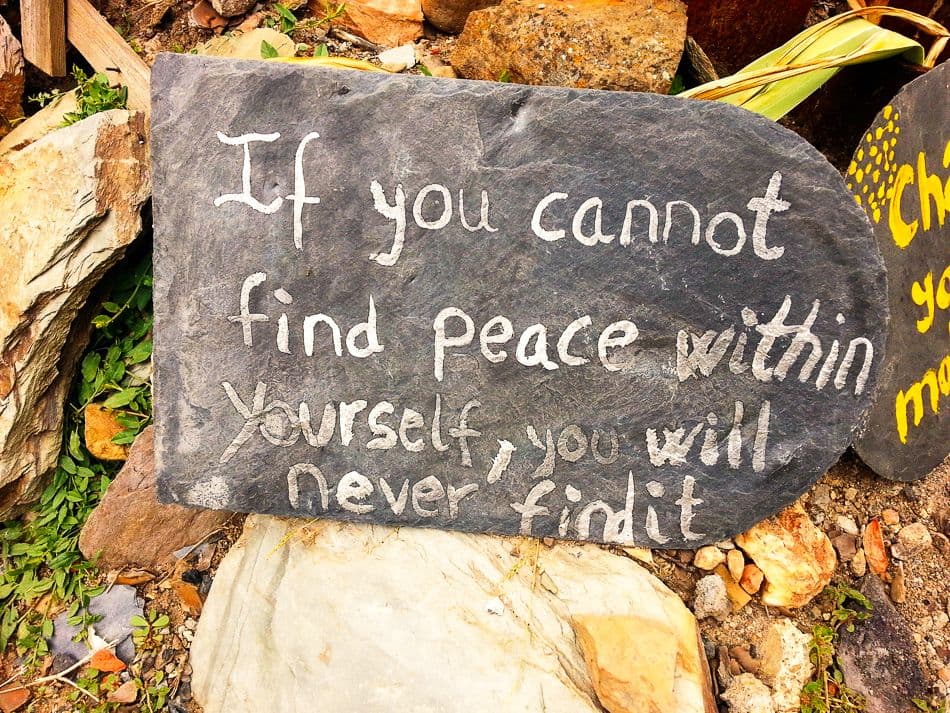 If you cannot
find peace within
Yourself, you will
never find it